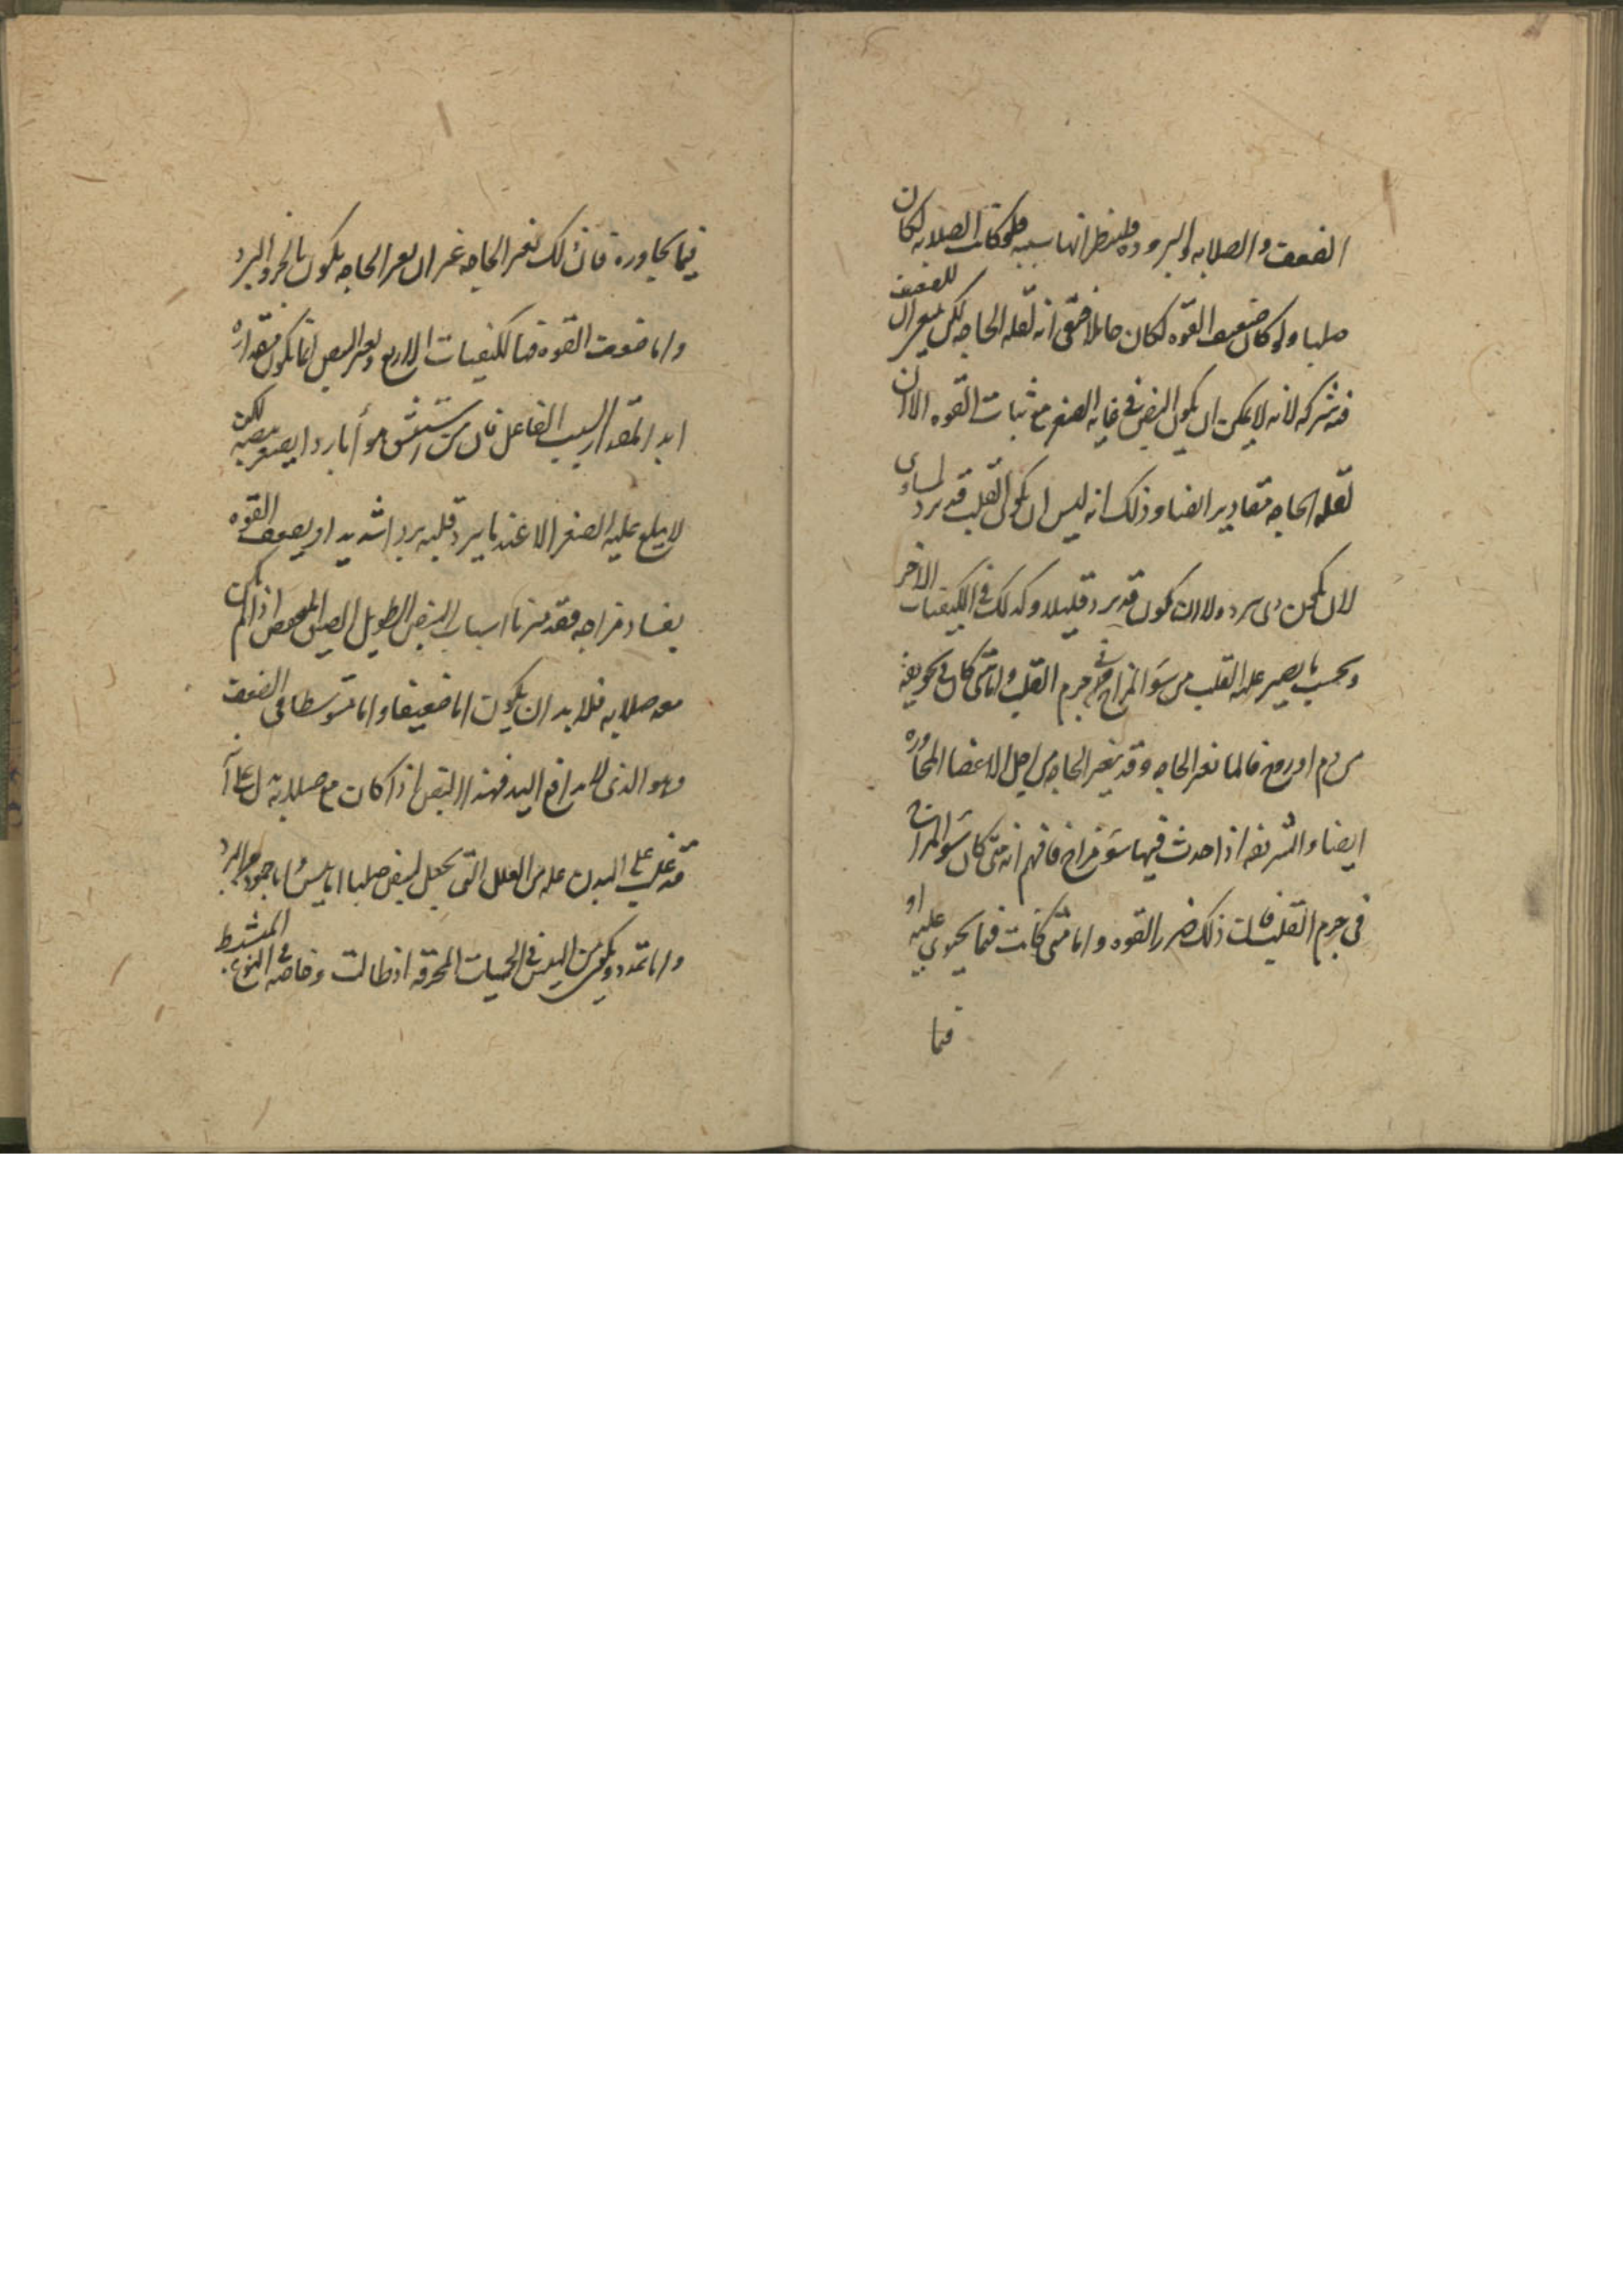 الضعف والصلابه والبروده فلينظر ايها سببه فلو كانت الصلابه لكان
صلبا ولو كان ضعيف القوه لكان حاملا فبقى انه لقله الحاجه لكن للضعف
فيه شركه لانه لا يمكن ان يكون النبض فى غايه الصغر مع ثبات القوه الا ان
لقله الحاجه مقادير ايضا وذلك انه ليس ان يكون القلب قد برد
ولا ان يكون قد برد قليلا وكذلك فى الكيفيات الاخر
وبحسب ما يصير عليه القلب من سوَ المزاج فى جرم القلب واما متى كان فى تجويفه
من دم او روح فانما تغير الحاجه وقد يتغير الحاجه من اجل الاعضا المجاوره
ايضا والشريفه اذا حدث فيها سوَ مزاج فافهم انه متى كان سوَ المزاج
فى جرم القلب كان ذلك ضرر القوه واما متى كانت فيما يحتوى عليه او
فيما
فيما يجاوره فان ذلك تغير الحاجه غير ان تغير الحاجه يكون بالحر والبرد
واما ضعف القوه فبالكيفيات الاربع وتغير النبض انما يكون مقداره
ابدا بمقدار السبب الفاعل فان من استنشق هوأ باردا يصغر نبضه لكن
لا يبلغ عليه الصغر الا عند ما يبرد قلبه بردا شديدا ويضعف القوه
بفساد مزاجه فقد ميزنا اسباب النبض الطويل الضيق المنخفض اذا لم يكن
معه صلابه فلا بد ان يكون اما ضعيفا واما متوسطا فى الضعف
وهو الذى لا يدافع اليد فهذا النبض اذا كان مع صلابه دل على انه
قد غلب على البدن عله من العلل التى يجعل النبض صلبا اما يبس واما جمود من البرد
واما تمدد ويكون من اليبس فى الحميات المحرقه اذا طالت وخاصه فى النوع المشيط